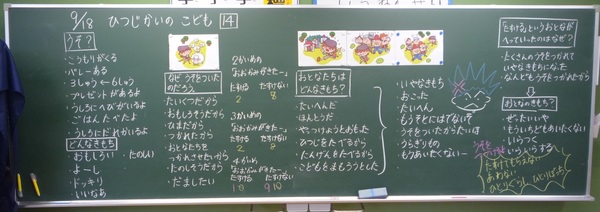 9/18 ひつじかいの こども 14
うそ?
・こうもりがくる
・バレーある
・3しゅうくらいしゅう
・プレゼントがあるよ
・うしろにへびがいるよ
・ごはんたべたよ
・うしろにだれかいるよ
どんなきもち
・おもしろい ・たのしい
・よーし
・ドッキリ
・いいなあ
なぜうそをついたのだろう。
・たいくつだから
・おもしろそうだから
・ひまだから
・つかれたから
・おとなたちを
つかれさせたいから
・たのしそうだから
・だましたい
2かいめの
「おおかみがきたー」
たすける たすけない
3かいめ
「おおかみがきたー」
たすける たすけない
4かいめ
「おおかみがきたー」
たすける たすけない
おとなたちは
どんなきもち?
・たいへんだ
・ほんとうだ
・やっつけようとおもった
・ひつじをたべるから
・にんげんをたべるから
・こどもをまもろうとした
・いやなきもち
・おこった
・たいへん
・もうそとにはでない
・うそをついたからだ
・うらぎりもの
・もうあいたくない
「たすける」というおとなが
へっていったのはなぜ?
・たくさんのうそをつかれて
いやなきもちになった
・なんどもうそをつかれたから
おとなのきもち?
・ぜったいいや
・もういちどもあいたくない
・いらつく
・いらいらする
うそを
たすけてもらえない
あわない
ひとりぐらし ひとりぼっち